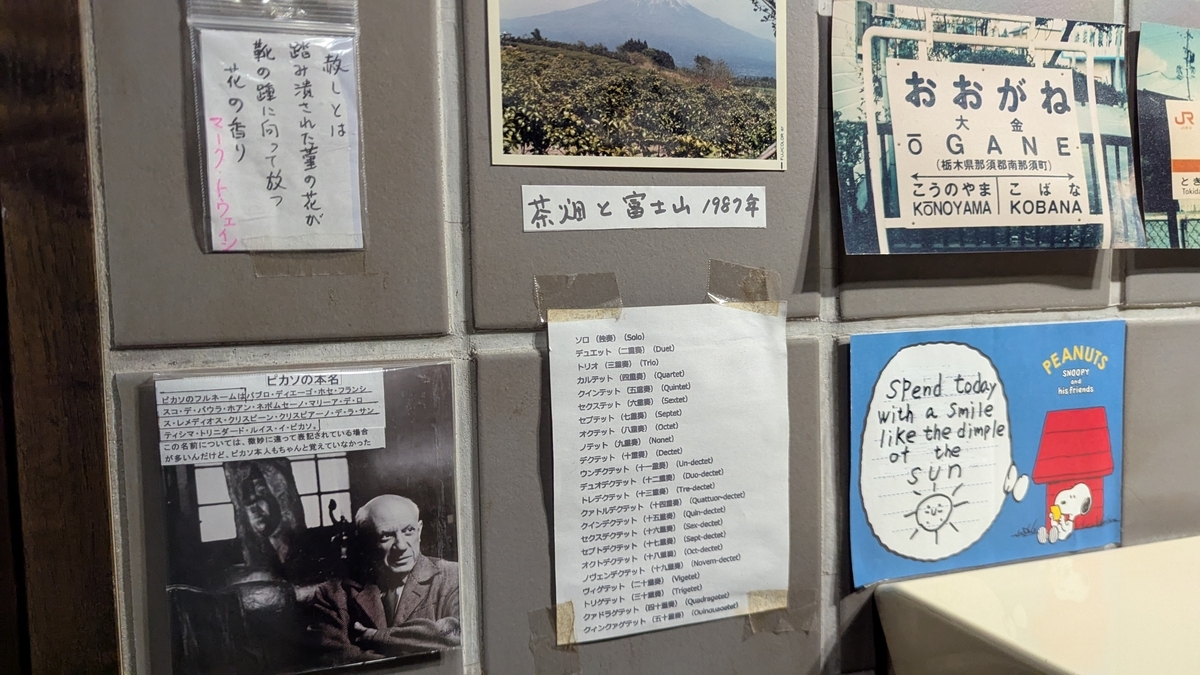 赦しとは
踏み潰された菫の花が
靴の踵に向って放つ
花の香り
マーク・トウェイン
茶畑と富士山 1987年
おおがね
大金
ŌGANE
(栃木県那須郡南那須町)
こうのやま
KŌNOYAMA
こばな
KOBANA
JR
とき
Tokida
ピカソの本名
ピカソのフルネームはパブロ・ディエーゴ・ホセ・フランシ
スコ・デ・パウラ・ホアン・ネポムセーノ・マリーア・デ・ロ
ス・レメディオス・クリスピーン・クリスピアーノ・デ・ラ・サン
ティシマ・トリニダード・ルイス・イ・ピカソ。
この名前については、微妙に違って表記されている場合
が多いんだけど、ピカソ本人もちゃんと覚えていなかった
ソロ (独奏) (Solo)
デュエット (二重奏) (Duet)
トリオ (三重奏) (Trio)
カルテット (四重奏) (Quartet)
クインテット (五重奏) (Quintet)
セクステット (六重奏) (Sextet)
セプテット (七重奏) (Septet)
オクテット (八重奏) (Octet)
ノテット (九重奏) (Nonet)
デクテット (十重奏) (Dectet)
ウンデクテット (十一重奏) (Un-dectet)
デュオデクテット (十二重奏) (Duo-dectet)
トレデクテット (十三重奏) (Tre-dectet)
クァトルデクテット (十四重奏) (Quattuor-dectet)
クインデクテット (十五重奏) (Quin-dectet)
セクスデクテット (十六重奏) (Sex-dectet)
セプトデクテット (十七重奏) (Sept-dectet)
オクトデクテット (十八重奏) (Oct-dectet)
ノヴェンデクテット (十九重奏) (Novem-dectet)
ヴィゲテット (二十重奏) (Vigetet)
トリゲテット (三十重奏) (Trigetet)
クァドラゲテット (四十重奏) (Quadragetet)
クィンクァゲテット (五十重奏) (Quinquagetet)
PEANUTS
SNOOPY
and
his friends
Spend today
with a smile
like the dimple
of the
sun